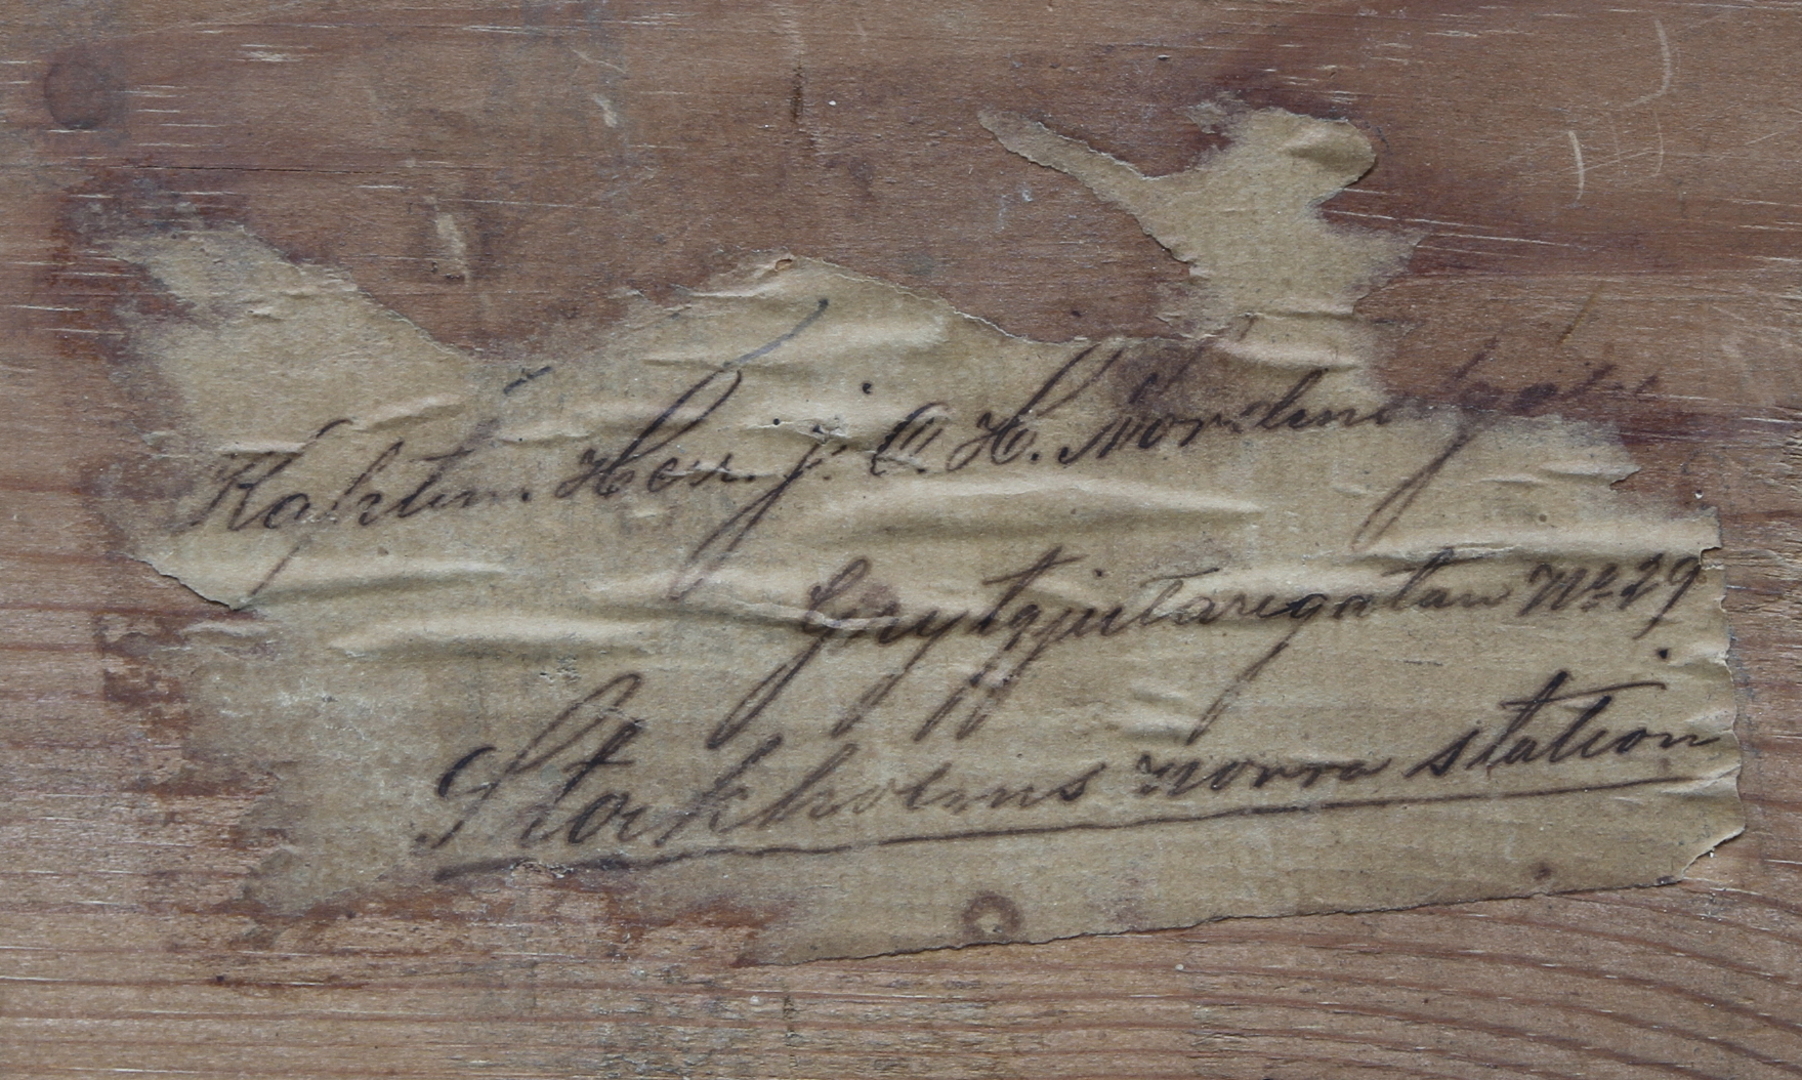 Kapten. Herr. J. O. H. Nordin
Grytgjutaregatan No 29
Stockholms norra station